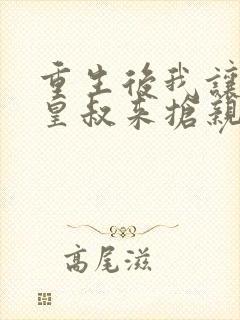 重生後我讓
皇叔來搶親
高尾滋